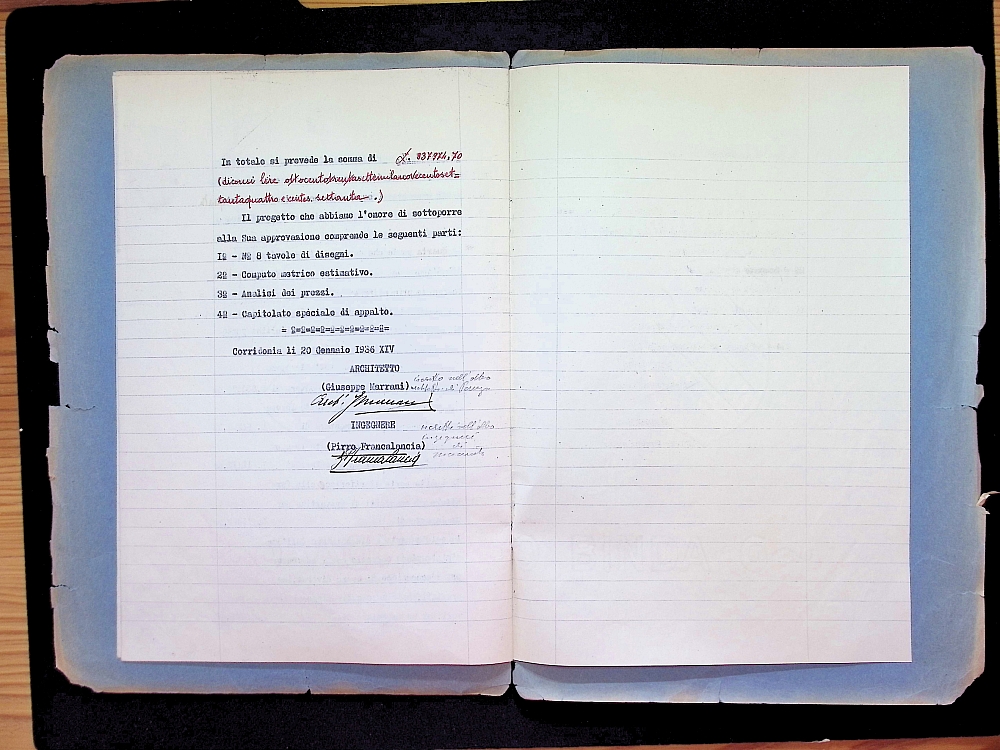 In totale si prevede la somma di L. 837974,70
(dicensi lire ottocentotrentasettemilanovecentoset=
tantaquattro e centes. settanta — .)
Il progetto che abbiamo l'onore di sottoporre
alla Sua approvazione comprende le seguenti parti:
1º - Nº 8 tavole di disegni.
2º - Computo metrico estimativo.
3º - Analisi dei prezzi.
4º - Capitolato speciale di appalto.
= º=º=º=º=º=º=º=º=º=
Corridonia li 20 Gennaio 1936 XIV
ARCHITETTO
(Giuseppe Marrani) iscritto nell'albo
Arch.
INGEGNERE
iscritto nell'albo
ingegneri
(Pirro Francalancia) di
PFrancalancia